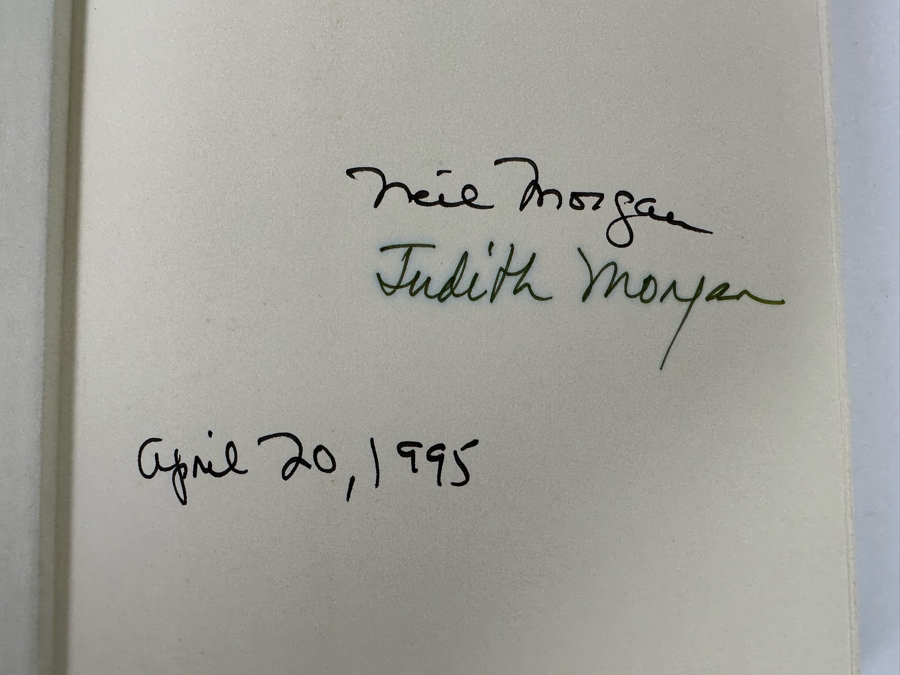 Neil Morgan
Judith Morgan
April 20, 1995